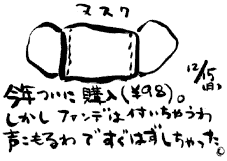 マスク
12/15(日)
今年ついに購入(¥98)。
しかしファンデは付いちゃうわ
声こもるわですぐはずしちゃった。